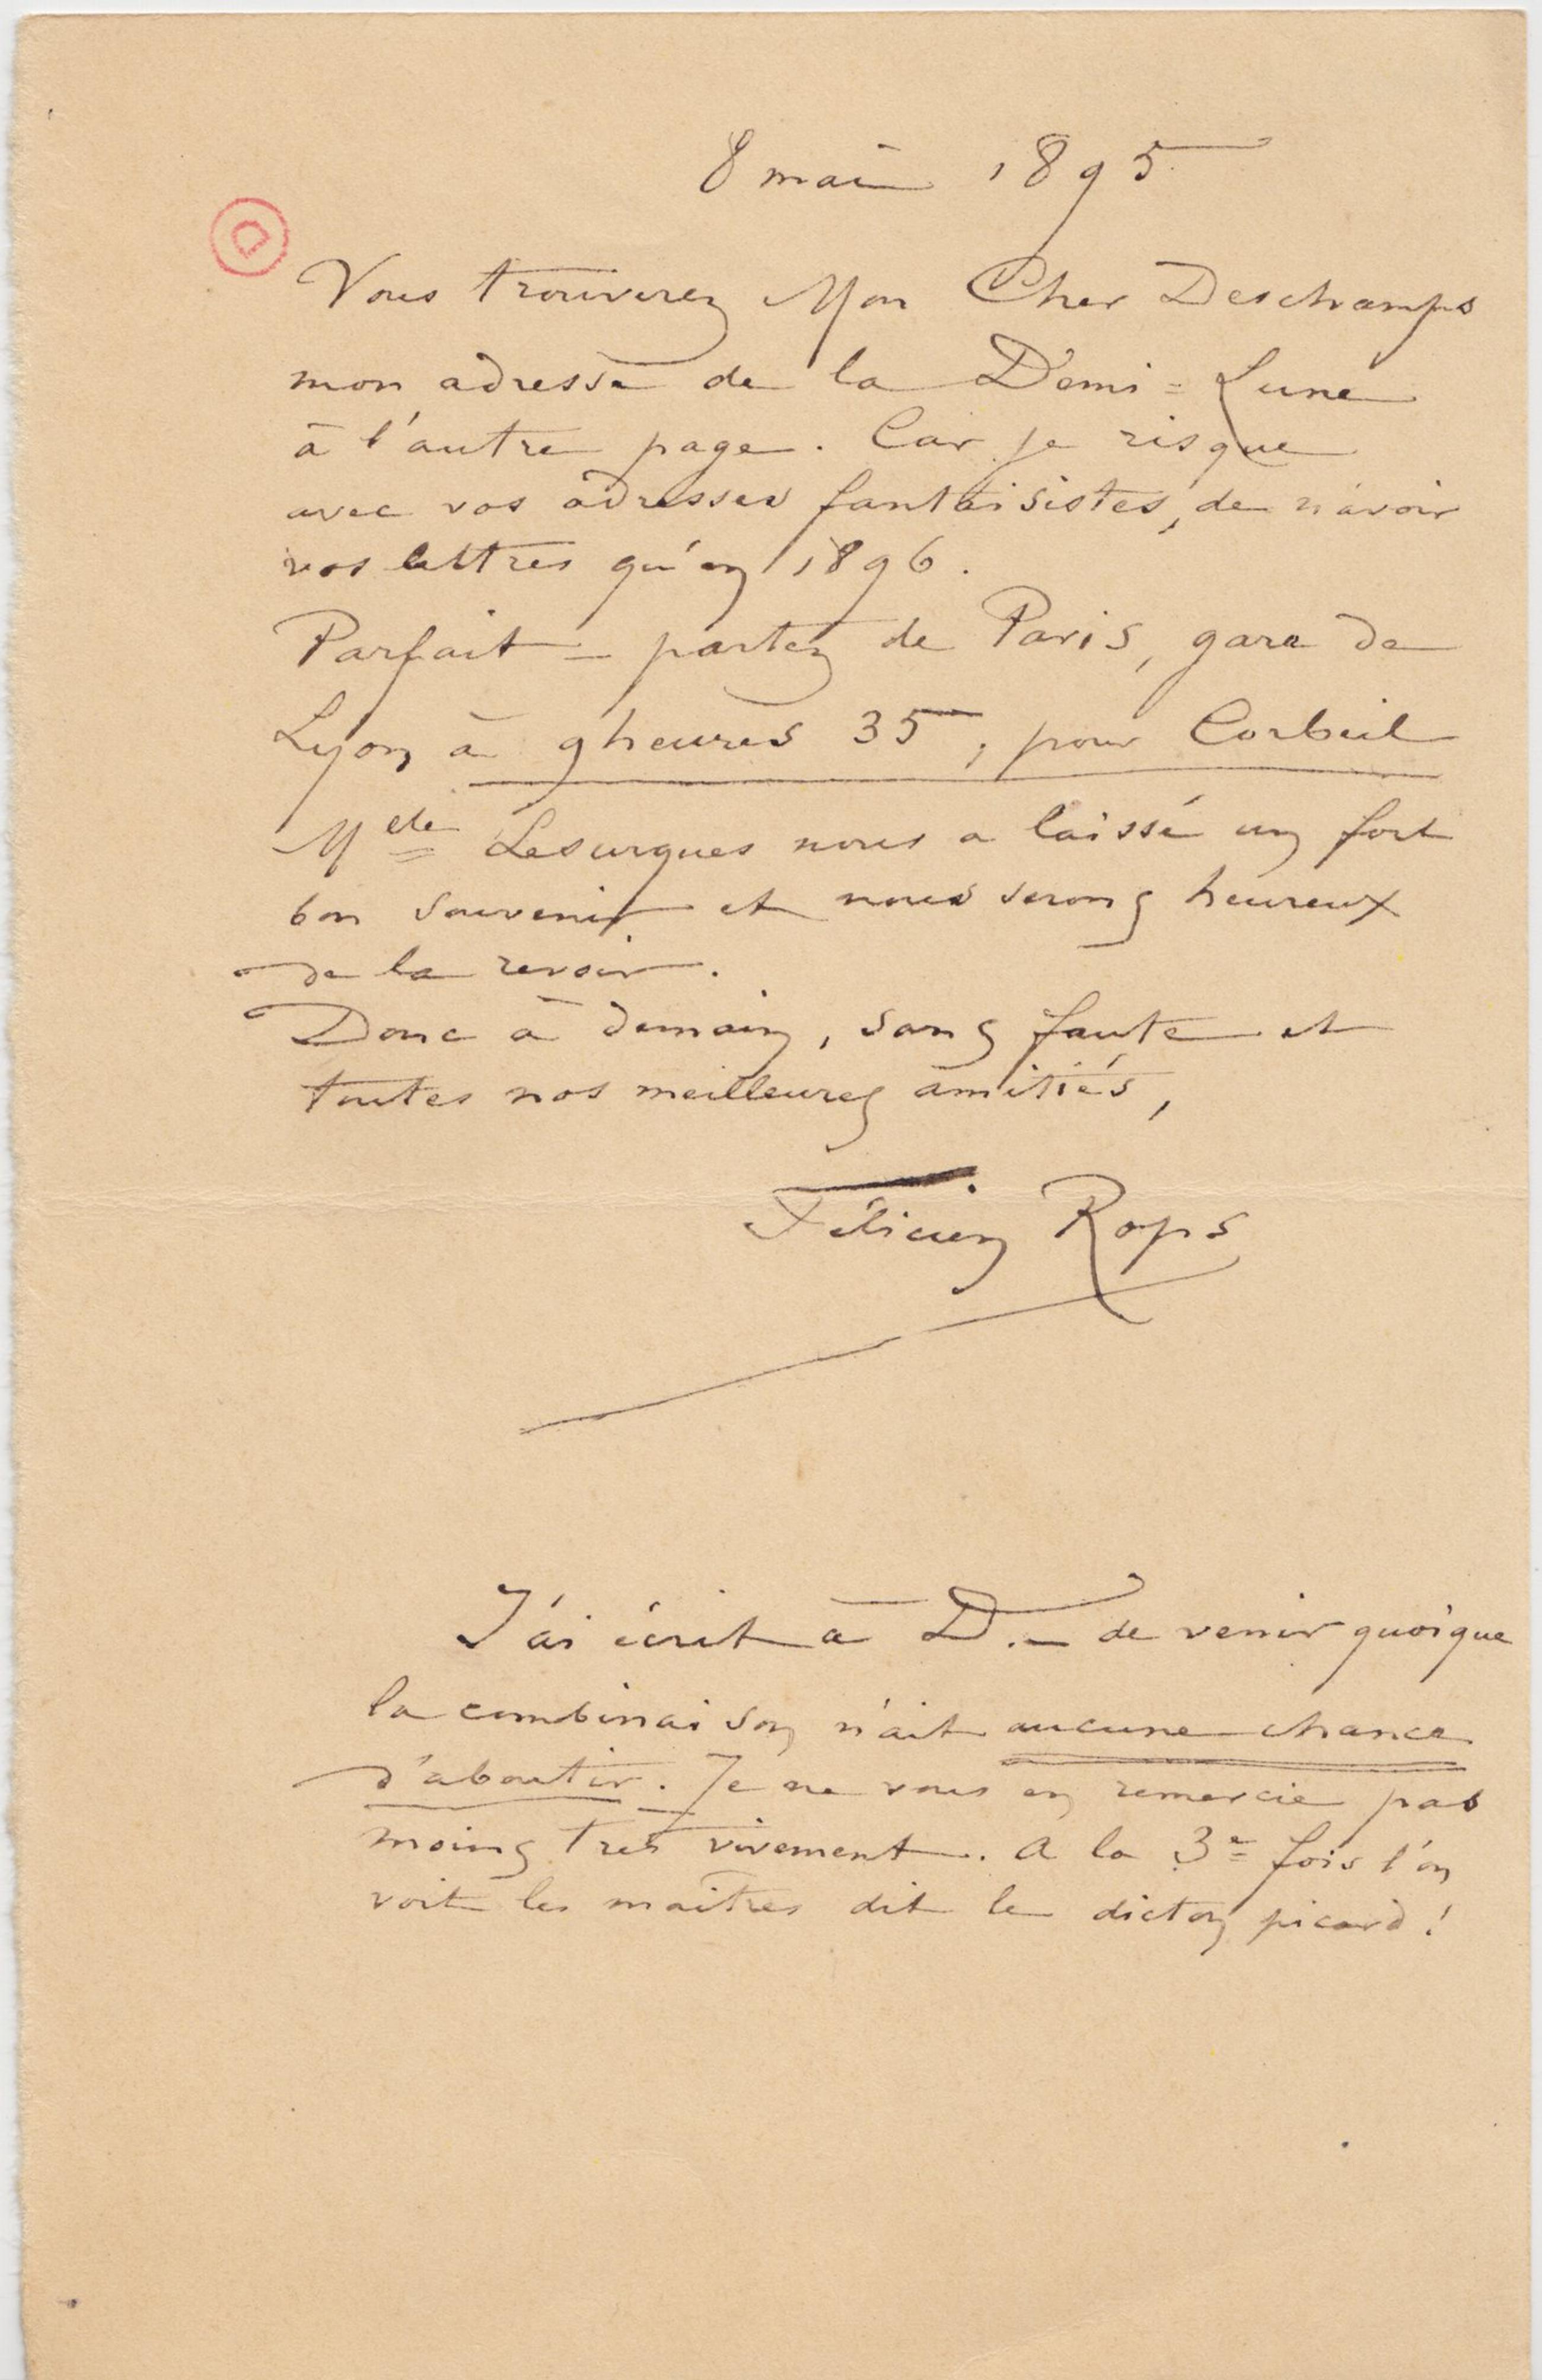 8 mai 1895
D
Vous trouverez Mon Cher Deschamps
mon adresse de la Demi=Lune
à l'autre page. Car je risque
avec vos adresses fantaisistes, de n'avoir
vos lettres qu'en 1896.
Parfait – partez de Paris, gare de
Lyon à 9 heures 35, pour Corbeil
Melle Lesurques nous a laissé un fort
bon souvenir et nous serons heureux
de la revoir.
Donc à demain, sans faute et
toutes nos meilleures amitiés,
Félicien Rops
J'ai écrit à D. – de venir quoique
la combinaison n'ait aucune chance
d'aboutir. Je ne vous en remercie pas
moins très vivement. A la 3e fois l'on
voit les maîtres dit le dicton picard !